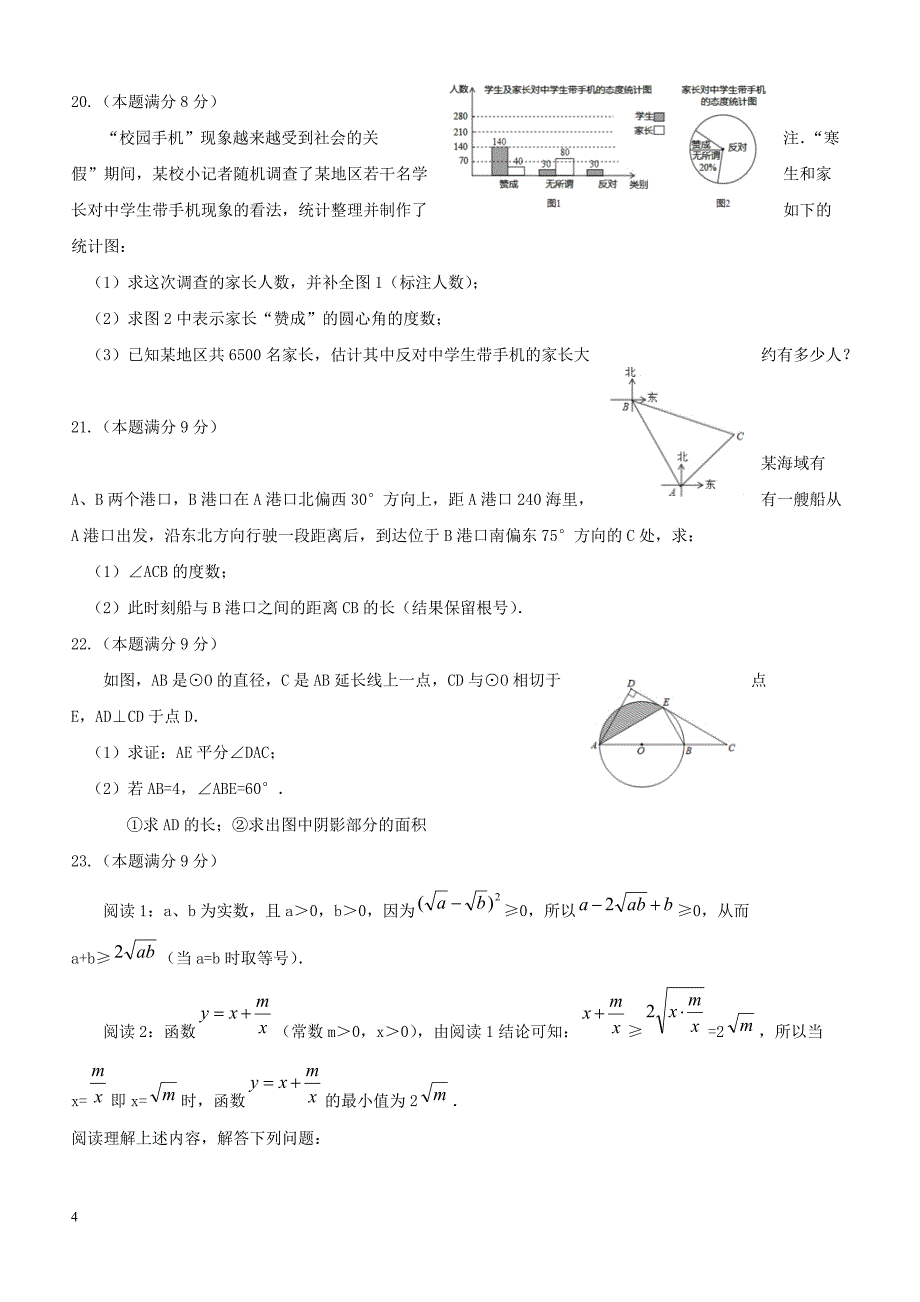 20.（本题满分8分）
“校园手机”现象越来越受到社会的关注．“寒
假”期间，某校小记者随机调查了某地区若干名学生和家
长对中学生带手机现象的看法，统计整理并制作了如下的
统计图：
人数 学生及家长对中学生带手机的态度统计图
280
210
140
70
140 40 30 80 30
赞成 无所谓 反对 类别
学生
家长
图1
家长对中学生带手机
的态度统计图
赞成
反对
无所谓
20%
图2
（1）求这次调查的家长人数，并补全图1（标注人数）；
（2）求图2中表示家长“赞成”的圆心角的度数；
（3）已知某地区共6500名家长，估计其中反对中学生带手机的家长大约有多少人？
21.（本题满分9分）
北
东
B
C
北
A
东
某海域有
A、B两个港口，B港口在A港口北偏西30°方向上，距A港口240海里，有一艘船从
A港口出发，沿东北方向行驶一段距离后，到达位于B港口南偏东75°方向的C处，求：
（1）∠ACB的度数；
（2）此时刻船与B港口之间的距离CB的长（结果保留根号）．
22.（本题满分9分）
如图，AB是⊙O的直径，C是AB延长线上一点，CD与⊙O相切于点
E，AD⊥CD于点D．
D
E
A O B C
（1）求证：AE平分∠DAC；
（2）若AB=4，∠ABE=60°．
①求AD的长；②求出图中阴影部分的面积
23.（本题满分9分）
阅读1：a、b为实数，且a＞0，b＞0，因为(√a－√b)²≥0，所以a－2√ab＋b≥0，从而
a+b≥2√ab（当a=b时取等号）．
阅读2：函数y＝x＋m/x（常数m＞0，x＞0），由阅读1结论可知：x＋m/x≥2√(x·m/x)=2√m，所以当
x=m/x即x=√m时，函数y＝x＋m/x的最小值为2√m．
阅读理解上述内容，解答下列问题：
4